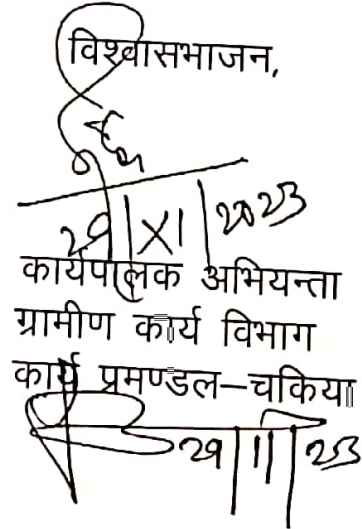 विश्वासभाजन,
29|XI|2023
कार्यपालक अभियन्ता
ग्रामीण कार्य विभाग
कार्य प्रमण्डल–चकिया
29|11|23